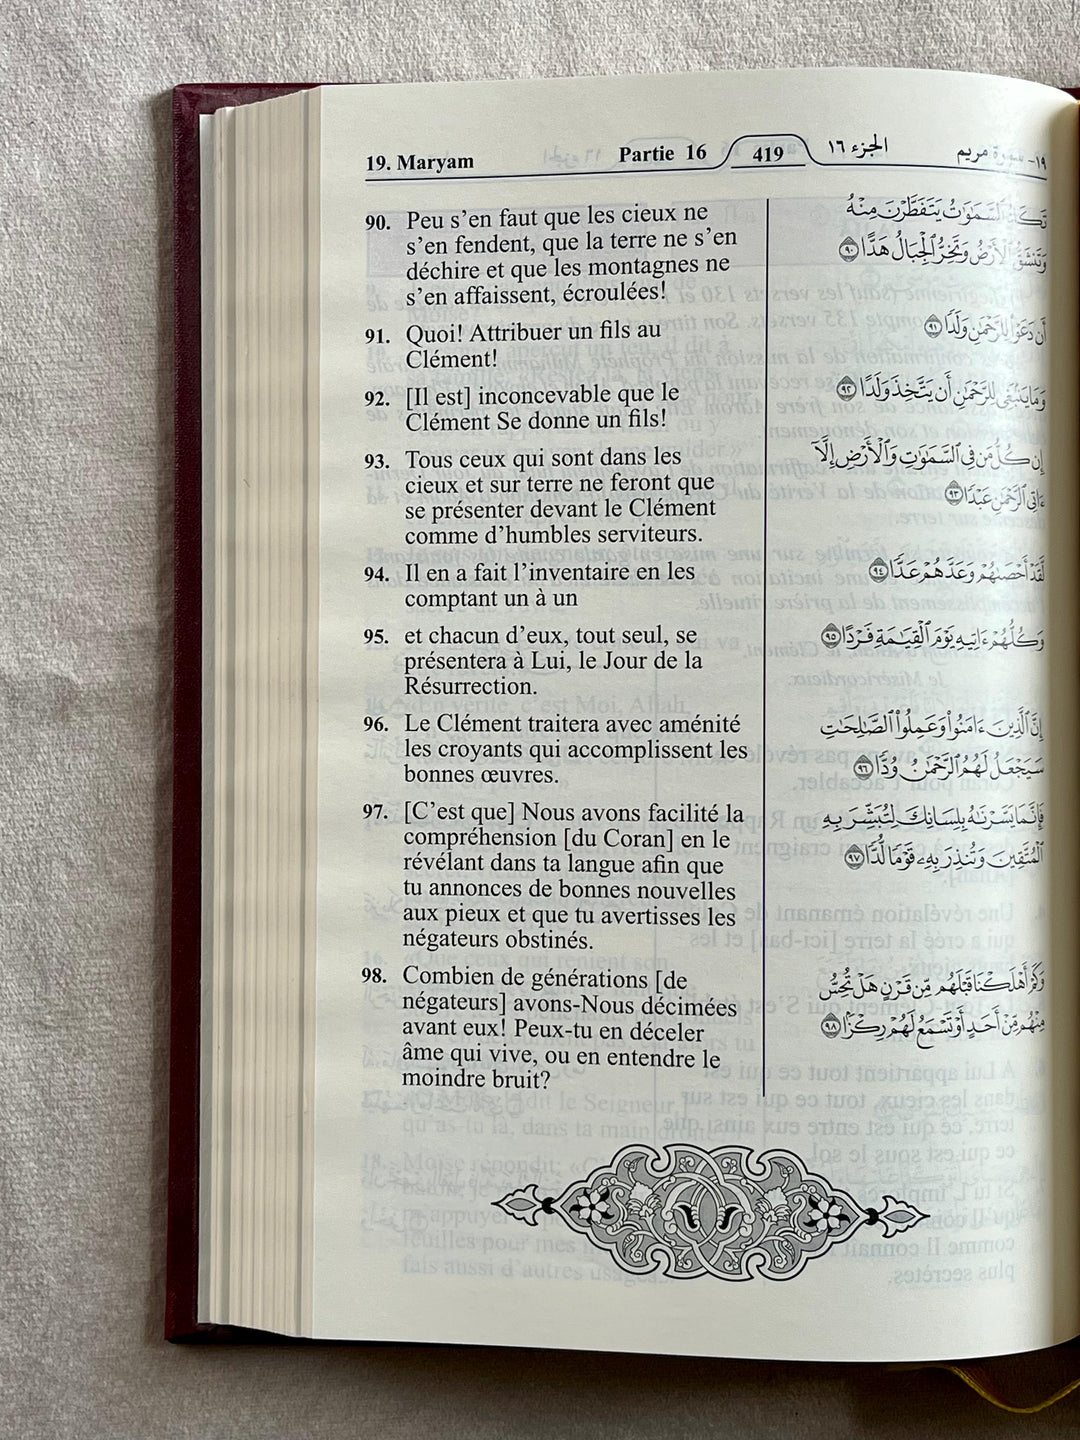 19. Maryam
Partie 16
419
الجزء ١٦
١٩- سورة مريم
90. Peu s’en faut que les cieux ne
s’en fendent, que la terre ne s’en
déchire et que les montagnes ne
s’en affaissent, écroulées!
91. Quoi! Attribuer un fils au
Clément!
92. [Il est] inconcevable que le
Clément Se donne un fils!
93. Tous ceux qui sont dans les
cieux et sur terre ne feront que
se présenter devant le Clément
comme d’humbles serviteurs.
94. Il en a fait l’inventaire en les
comptant un à un
95. et chacun d’eux, tout seul, se
présentera à Lui, le Jour de la
Résurrection.
96. Le Clément traitera avec aménité
les croyants qui accomplissent les
bonnes œuvres.
97. [C’est que] Nous avons facilité la
compréhension [du Coran] en le
révélant dans ta langue afin que
tu annonces de bonnes nouvelles
aux pieux et que tu avertisses les
négateurs obstinés.
98. Combien de générations [de
négateurs] avons-Nous décimées
avant eux! Peux-tu en déceler
âme qui vive, ou en entendre le
moindre bruit?
تَكَادُ ٱلسَّمَـٰوَٰتُ يَتَفَطَّرْنَ مِنْهُ
وَتَنشَقُّ ٱلْأَرْضُ وَتَخِرُّ ٱلْجِبَالُ هَدًّا ٩٠
أَن دَعَوْا۟ لِلرَّحْمَـٰنِ وَلَدًا ٩١
وَمَا يَنۢبَغِى لِلرَّحْمَـٰنِ أَن يَتَّخِذَ وَلَدًا ٩٢
إِن كُلُّ مَن فِى ٱلسَّمَـٰوَٰتِ وَٱلْأَرْضِ إِلَّآ
ءَاتِى ٱلرَّحْمَـٰنِ عَبْدًا ٩٣
لَّقَدْ أَحْصَىٰهُمْ وَعَدَّهُمْ عَدًّا ٩٤
وَكُلُّهُمْ ءَاتِيهِ يَوْمَ ٱلْقِيَـٰمَةِ فَرْدًا ٩٥
إِنَّ ٱلَّذِينَ ءَامَنُوا۟ وَعَمِلُوا۟ ٱلصَّـٰلِحَـٰتِ
سَيَجْعَلُ لَهُمُ ٱلرَّحْمَـٰنُ وُدًّا ٩٦
فَإِنَّمَا يَسَّرْنَـٰهُ بِلِسَانِكَ لِتُبَشِّرَ بِهِ
ٱلْمُتَّقِينَ وَتُنذِرَ بِهِۦ قَوْمًا لُّدًّا ٩٧
وَكَمْ أَهْلَكْنَا قَبْلَهُم مِّن قَرْنٍ هَلْ تُحِسُّ
مِنْهُم مِّنْ أَحَدٍ أَوْ تَسْمَعُ لَهُمْ رِكْزًۢا ٩٨